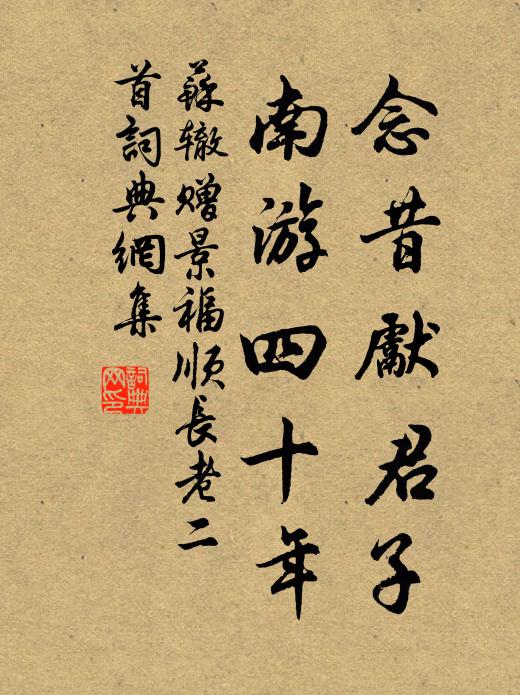 念昔獻君子
南游四十年
蘇辙赠景福順長老二
首詞典網集
詞典网印